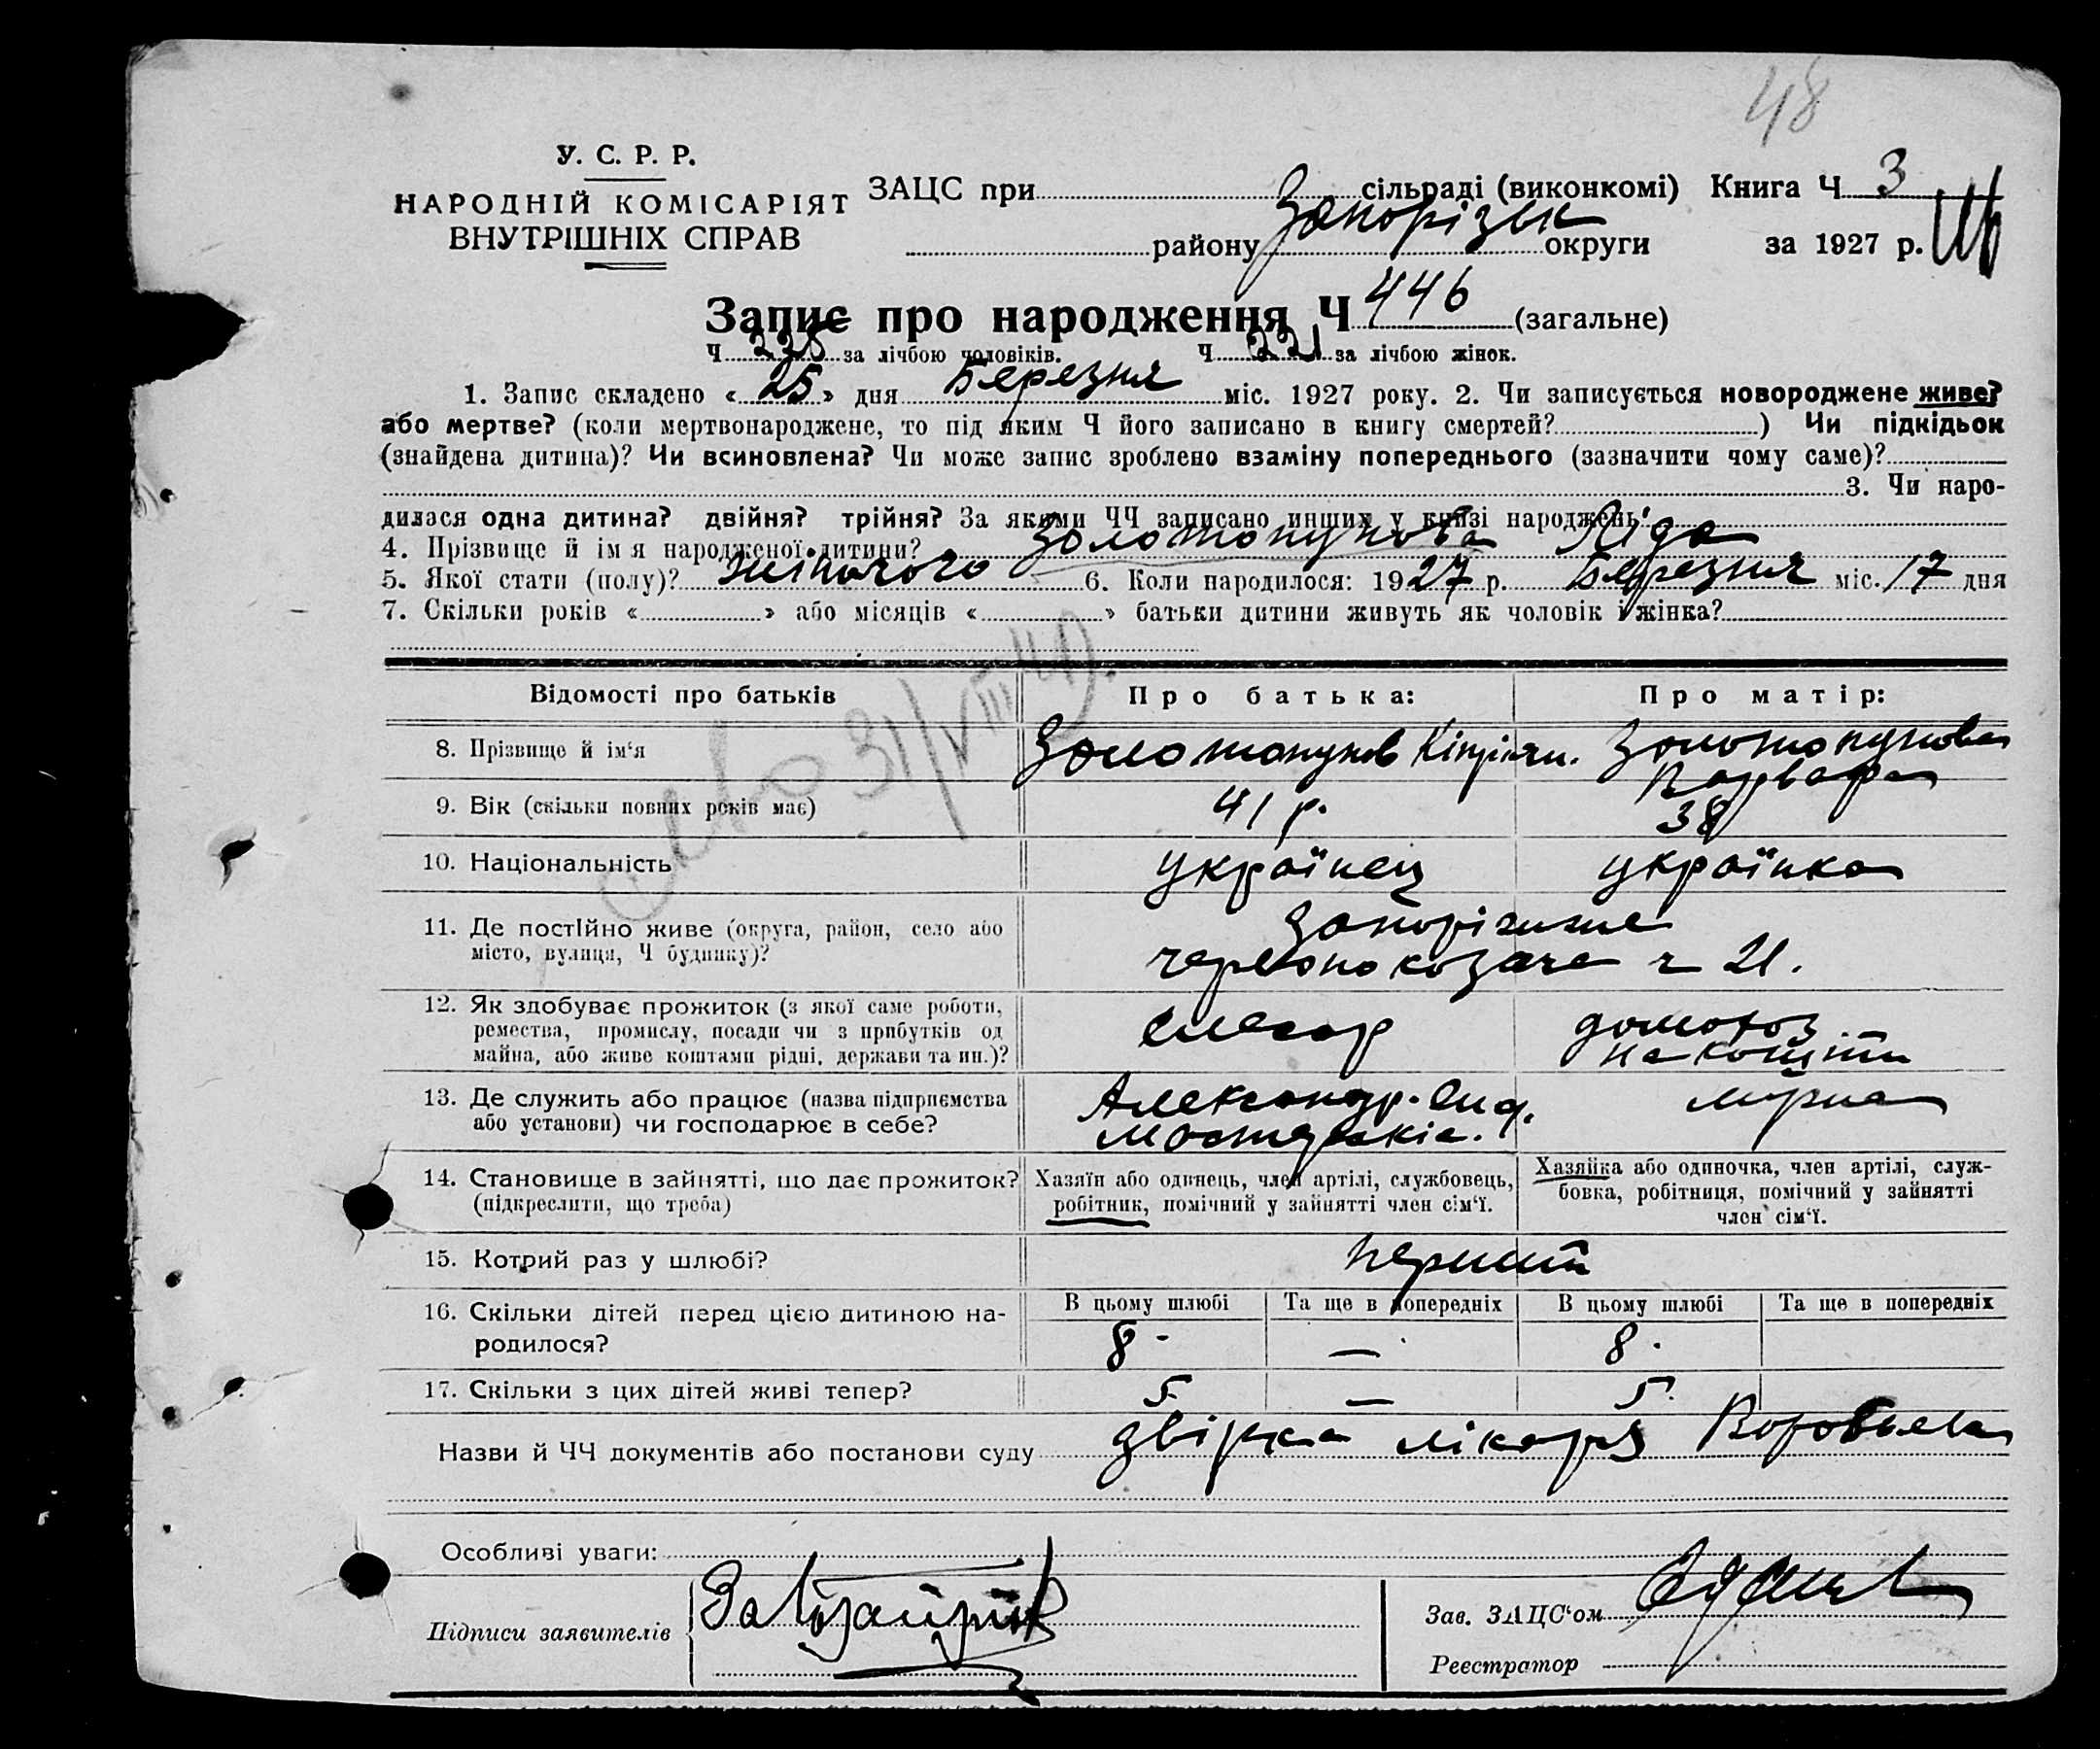 48
У. С. Р. Р.
НАРОДНІЙ КОМІСАРІЯТ
ВНУТРІШНІХ СПРАВ
ЗАЦС при сільраді (виконкомі) Книга Ч 3
району Запорізьк округи за 1927 р.
Запис про народження Ч 446 (загальне)
Ч 225 за лічбою чоловіків. Ч 221 за лічбою жінок.
1. Запис складено « 25 » дня Березня міс. 1927 року. 2. Чи записується новороджене живе?
або мертве? (коли мертвонароджене, то під яким Ч його записано в книгу смертей? ) Чи підкідьок
(знайдена дитина)? Чи всиновлена? Чи може запис зроблено взаміну попереднього (зазначити чому саме)?
3. Чи наро-
дилася одна дитина? двійня? трійня? За якими ЧЧ записано инших у книзі народжень?
4. Прізвище й ім я народженої дитини? Золотопупова Ліда
5. Якої стати (полу)? жіночого 6. Коли народилося: 1927 р. Березня міс. 17 дня
7. Скільки років « » або місяців « » батьки дитини живуть як чоловік і жінка?
31/VIII 41
Відомості про батьків Про батька: Про матір:
8. Прізвище й ім‘я Золотопупов Кіпріян. Золотопупова
Варвара
9. Вік (скільки повних років має) 41 р. 38
10. Національність українец українка
11. Де постійно живе (округа, район, село або
місто, вулиця, Ч будинку)?
Запоріжжє
червонокозача ч 21.
12. Як здобуває прожиток (з якої саме роботи,
ремества, промислу, посади чи з прибутків од
майна, або живе коштами рідні, держави та ин.)?
слесар домохоз.
на кошти
13. Де служить або працює (назва підприємства
або установи) чи господарює в себе?
Александр.
мужа
14. Становище в зайнятті, що дає прожиток?
(підкреслити, що треба)
Хазяїн або одинець, член артілі, службовець,
робітник, помічний у зайнятті член сім‘ї.
Хазяйка або одиночка, член артілі, служ-
бовка, робітниця, помічний у зайнятті
член сім‘ї.
15. Котрий раз у шлюбі? перший
16. Скільки дітей перед цією дитиною на-
родилося?
В цьому шлюбі Та ще в попередніх В цьому шлюбі Та ще в попередніх
8 - — 8 .
17. Скільки з цих дітей живі тепер? 5 — 5.
Назви й ЧЧ документів або постанови суду довідка лікаря Воробьева
Особливі уваги:
Підписи заявителів
Зав. ЗАЦС‘ом
Реєстратор